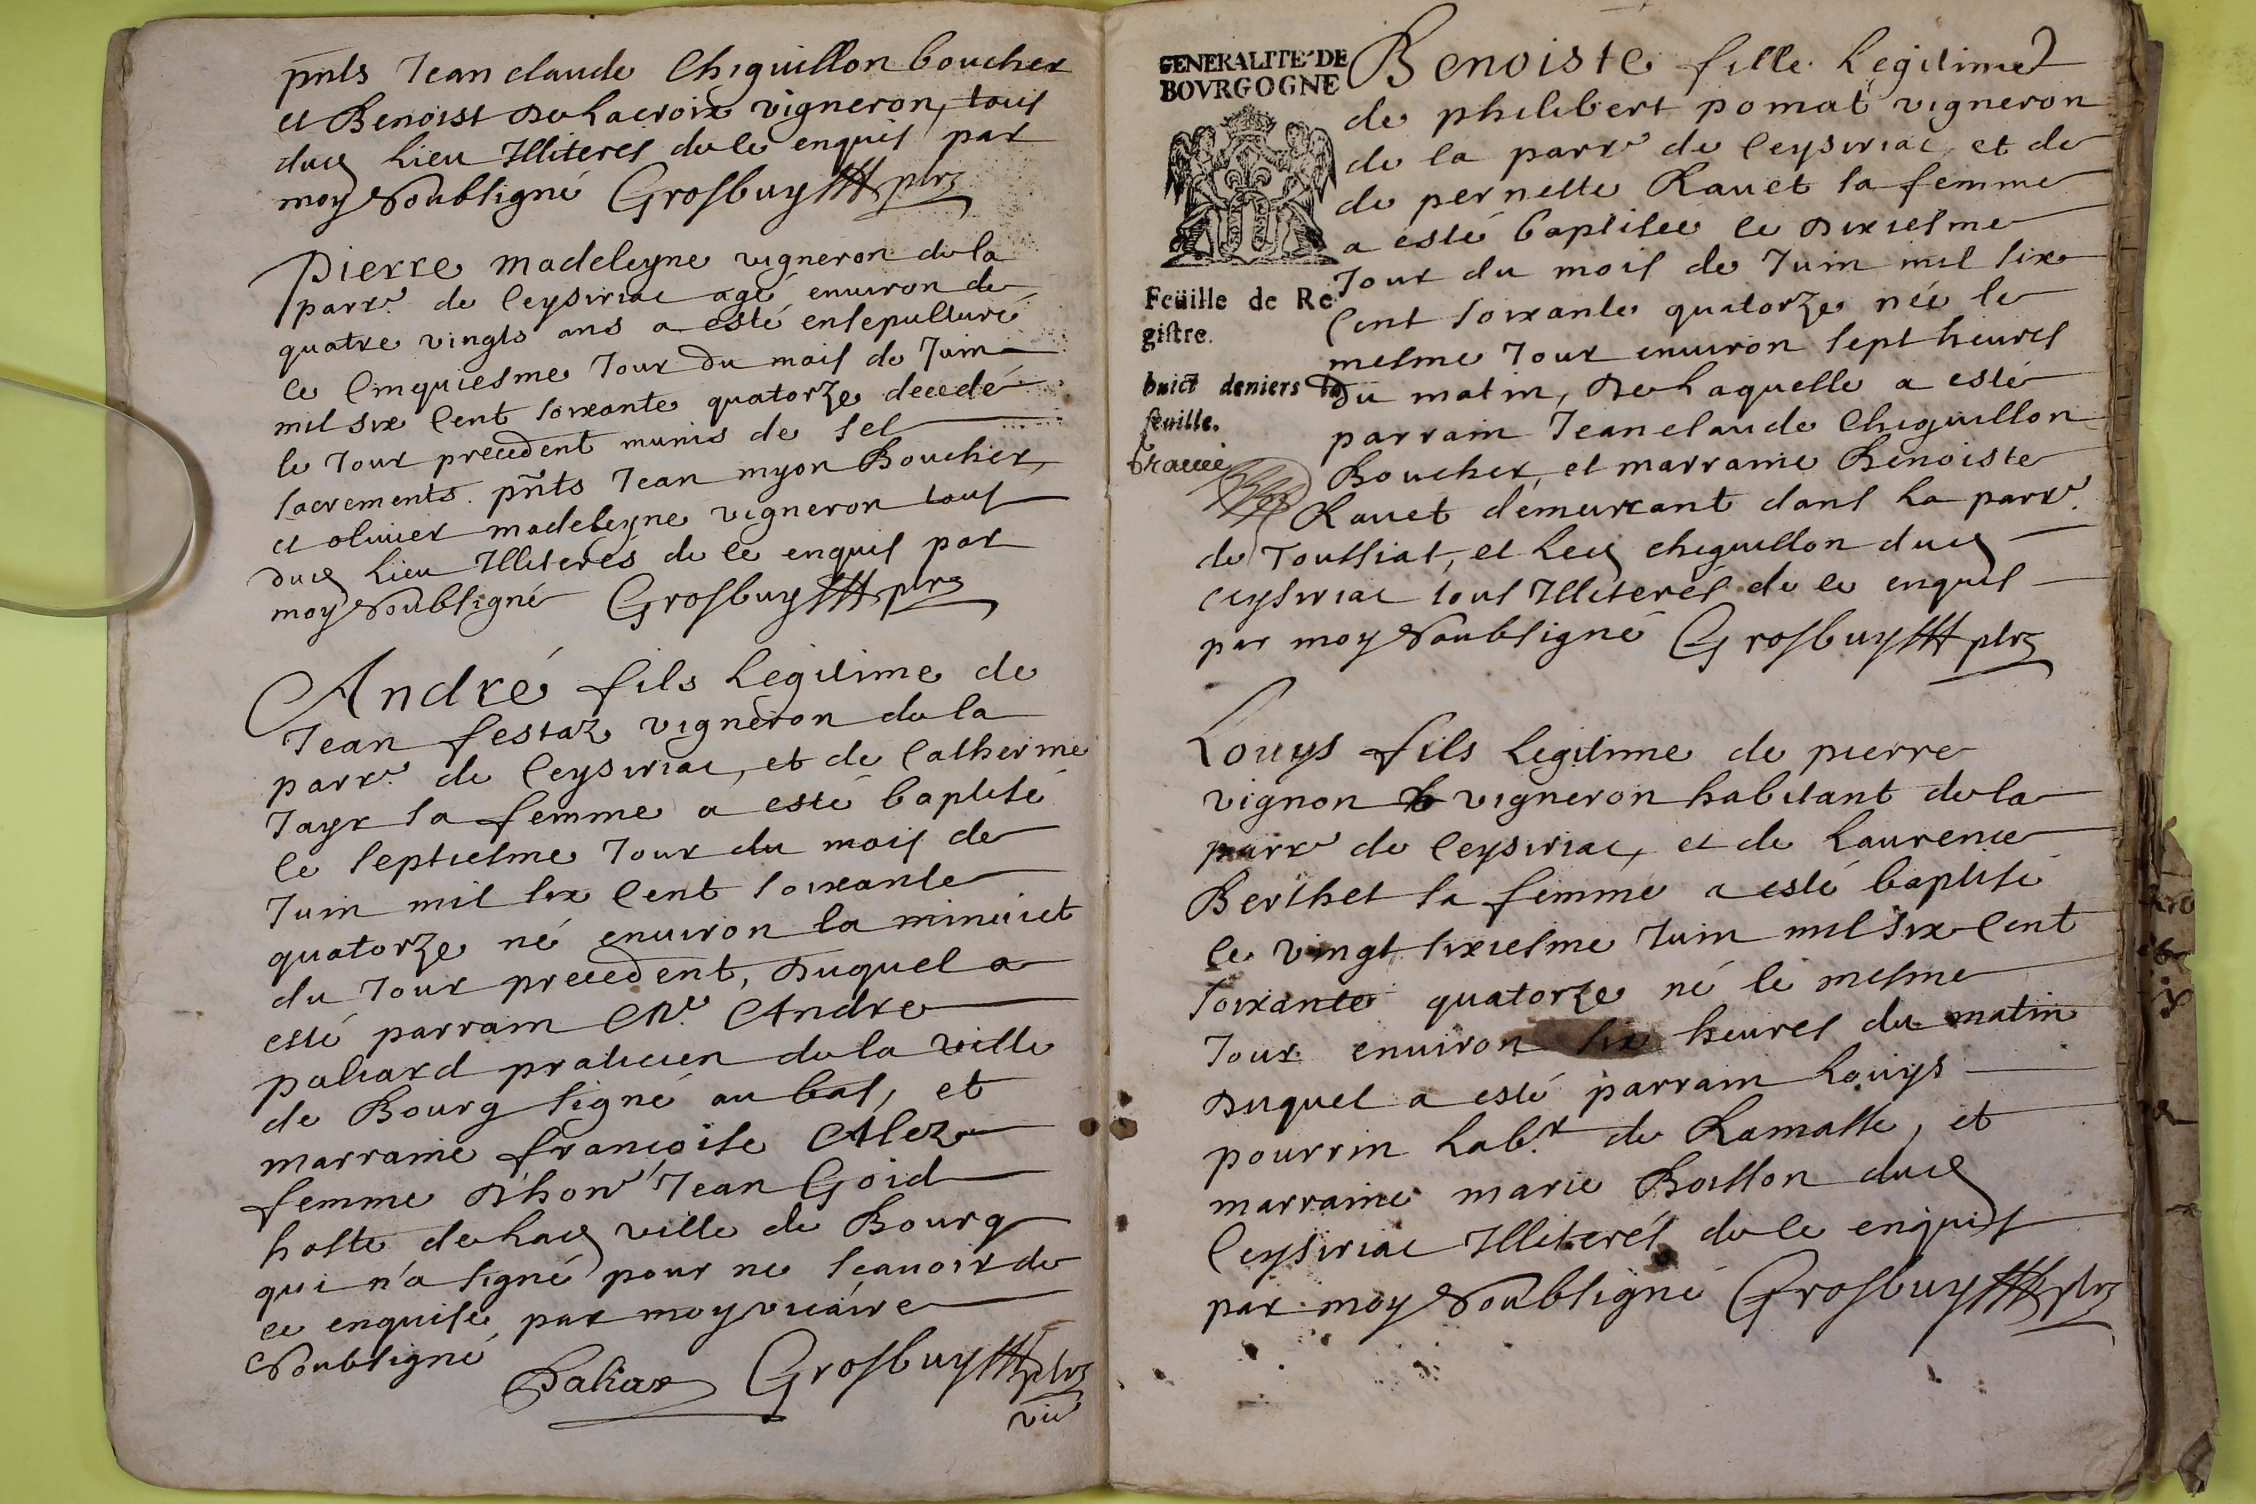 pñts Jean claude Chiguillon boucher
et Benoist de Lacroix vigneron, tous
dud Lieu Illiterés de ce enquis par
moy Soubsigné Grosbuy ptre
Pierre madeleyne vigneron de la
parr.e de Ceysiriac agé environ de
quatre vingts ans a esté ensepulturé
le Cinquiesme Jour du mois de Juin
mil six Cent soixante quatorze decedé
le Jour precedent munis de ses
sacrements. pñts Jean myon Boucher,
et olivier madeleyne vigneron tous
dud Lieu Illiterés de ce enquis par
moy Soubsigné Grosbuy ptre
André fils Legitime de
Jean festaz vigneron de la
parr.e de Ceysiriac, et de Catherine
Jayr sa femme a esté baptisé
le septiesme Jour du mois de
Juin mil six Cent soixante
quatorze né environ la minuict
du Jour precedent, Duquel a
esté parrain M.e Andre
paliard praticien de la ville
de Bourg signé au bas, et
marraine francoise Alez
femme d'hon.e Jean Goid
hoste de Lad ville de Bourg
qui n'a signé pour ne scavoir de
ce enquise par moy vicaire
Soubsigné
Paliar Grosbuy ptre
vic
GENERALITE DE
BOVRGOGNE
Feüille de Re
gistre.
huict deniers la
feuille.
Benoiste fille Legitime
de philibert pomat vigneron
de la parr.e de Ceysiriac et de
de pernette Ravet sa femme
a esté baptisée le dixiesme
Jour du mois de Juin mil six
Cent soixante quatorze née le
mesme Jour environ sept heures
Du matin, De Laquelle a esté
parrain Jean claude Chiguillon
Boucher, et marraine Benoiste
Ravet demeurant dans La parr.e
de Toussiat, et Led chiguillon dud
Ceysiriac tous Illiterés de ce enquis
par moy Soubsigné Grosbuy ptre
Louys fils Legitime de pierre
vignon vigneron habitant de la
parr.e de Ceysiriac, et de Laurence
Berthet sa femme a esté baptisé
le vingt sixiesme Juin mil six Cent
soixante quatorze né le mesme
Jour environ six heures du matin
Duquel a esté parrain Louys
pourrin Lab.r de Ramasse, et
marraine marie Boisson dud
Ceysiriac Illiterés de ce enquis
par moy Soubsigné Grosbuy ptre